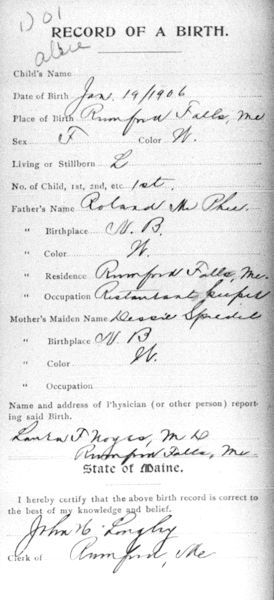 RECORD OF A BIRTH.
Child's Name
Date of Birth Jan 19/1906
Place of Birth Rumford Falls, Me
Sex F Color W.
Living or Stillborn L
No. of Child, 1st, 2nd, etc. 1st.
Father's Name Roland Mc Phee
" Birthplace N. B.
" Color W.
" Residence Rumford Falls, Me.
" Occupation Restaurant keeper
Mother's Maiden Name
" Birthplace N B
" Color W.
" Occupation
Name and address of Physician (or other person) report-
ing said Birth.
Laura F Noyes, M D
Rumford Falls, Me.
State of Maine.
I hereby certify that the above birth record is correct to
the best of my knowledge and belief.
John H. Longley
Clerk of Rumford, Me